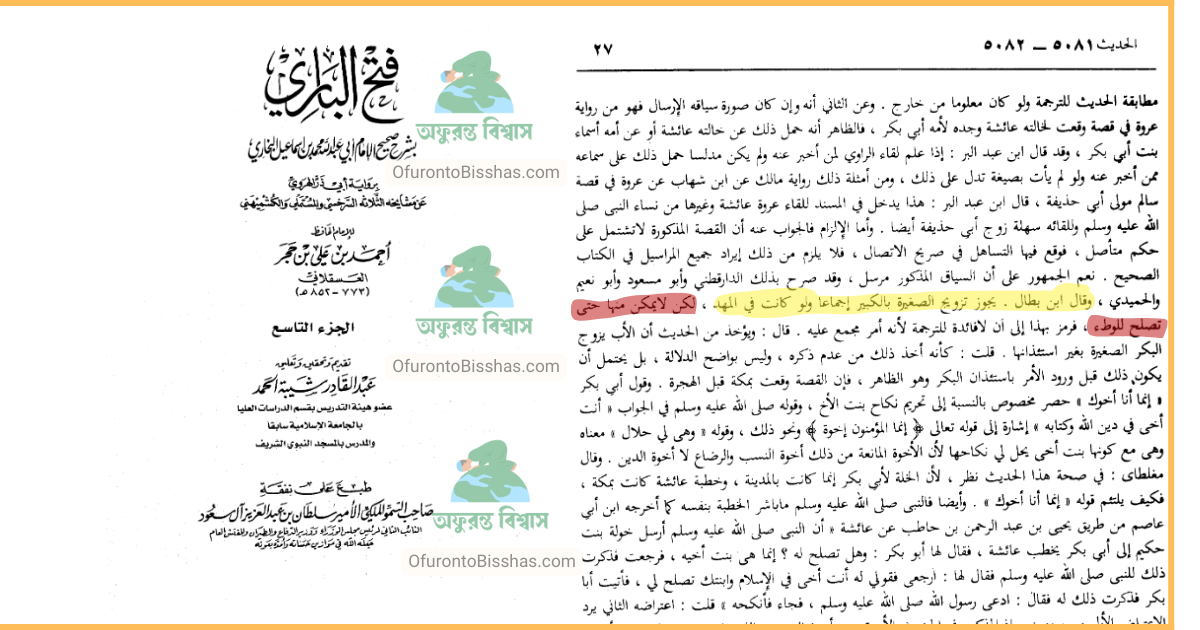 الحديث ٥٠٨١ – ٥٠٨٢
٢٧
مطابقة الحديث للترجمة ولو كان معلوما من خارج . وعن الثاني أنه وإن كان صورة سياقه الإرسال فهو من رواية
عروة في قصة وقعت لخالته عائشة وجده لأمه أبي بكر ، فالظاهر أنه حمل ذلك عن خالته عائشة أو عن أمه أسماء
بنت أبي بكر ، وقد قال ابن عبد البر : إذا علم لقاء الراوي لمن أخبر عنه ولم يكن مدلسا حمل ذلك على سماعه
ممن أخبر عنه ولو لم يأت بصيغة تدل على ذلك ، ومن أمثلة ذلك رواية مالك عن ابن شهاب عن عروة في قصة
سالم مولى أبي حذيفة ، قال ابن عبد البر : هذا يدخل في المسند للقاء عروة عائشة وغيرها من نساء النبى صلى
الله عليه وسلم وللقائه سهلة زوج أبي حذيفة أيضا . وأما الإلزام فالجواب عنه أن القصة المذكورة لاتشتمل على
حكم متأصل ، فوقع فيها التساهل في صريح الاتصال ، فلا يلزم من ذلك إيراد جميع المراسيل في الكتاب
الصحيح . نعم الجمهور على أن السياق المذكور مرسل ، وقد صرح بذلك الدارقطني وأبو مسعود وأبو نعيم
والحميدي ، وقال ابن بطال . يجوز تزويج الصغيرة بالكبير إجماعا ولو كانت في المهد ، لكن لايمكن منها حتى
تصلح للوطء ، فرمز بهذا إلى أن لافائدة للترجمة لأنه أمر مجمع عليه . قال : ويؤخذ من الحديث أن الأب يزوج
البكر الصغيرة بغير استئذانها . قلت : كأنه أخذ ذلك من عدم ذكره ، وليس بواضح الدلالة ، بل يحتمل أن
يكون ذلك قبل ورود الأمر باستئذان البكر وهو الظاهر ، فإن القصة وقعت بمكة قبل الهجرة . وقول أبي بكر
« إنما أنا أخوك » حصر مخصوص بالنسبة إلى تحريم نكاح بنت الأخ ، وقوله صلى الله عليه وسلم في الجواب « أنت
أخى في دين الله وكتابه » إشارة إلى قوله تعالى ﴿ إنما المؤمنون إخوة ﴾ ونحو ذلك ، وقوله « وهى لي حلال » معناه
وهى مع كونها بنت أخى يحل لي نكاحها لأن الأخوة المانعة من ذلك أخوة النسب والرضاع لا أخوة الدين . وقال
مغلطاى : في صحة هذا الحديث نظر ، لأن الخلة لأبي بكر إنما كانت بالمدينة ، وخطبة عائشة كانت بمكة ،
فكيف يلتئم قوله « إنما أنا أخوك » . وأيضا فالنبى صلى الله عليه وسلم ماباشر الخطبة بنفسه كما أخرجه ابن أبي
عاصم من طريق يحيى بن عبد الرحمن بن حاطب عن عائشة « أن النبى صلى الله عليه وسلم أرسل خولة بنت
حكيم إلى أبي بكر يخطب عائشة ، فقال لها أبو بكر : وهل تصلح له ؟ إنما هى بنت أخيه ، فرجعت فذكرت
ذلك للنبى صلى الله عليه وسلم فقال لها : ارجعى فقولي له أنت أخى في الإسلام وابنتك تصلح لي ، فأتيت أبا
بكر فذكرت ذلك له فقال : ادعى رسول الله صلى الله عليه وسلم ، فجاء فأنكحه » قلت : اعتراضه الثاني يرد
فتح الباري
بشرح صحيح الإمام أبي عبد الله محمد بن إسماعيل البخاري
برواية أبي ذر الهروي
عن مشايخه الثلاثة السرخسي والمستملي والكشميهني
للإمام الحافظ
أحمد بن علي بن حجر
العسقلاني
(٧٧٣ – ٨٥٢ هـ)
الجزء التاسع
تقديم وتحقيق وتعليق
عبد القادر شيبة الحمد
عضو هيئة التدريس بقسم الدراسات العليا
بالجامعة الإسلامية سابقا
والمدرس بالمسجد النبوي الشريف
طبع على نفقة
صاحب السمو الملكي الأمير سلطان بن عبد العزيز آل سعود
النائب الثاني لرئيس مجلس الوزراء ووزير الدفاع والطيران والمفتش العام
অফুরন্ত বিশ্বাস
OfurontoBisshas.com
অফুরন্ত বিশ্বাস
OfurontoBisshas.com
অফুরন্ত বিশ্বাস
OfurontoBisshas.com